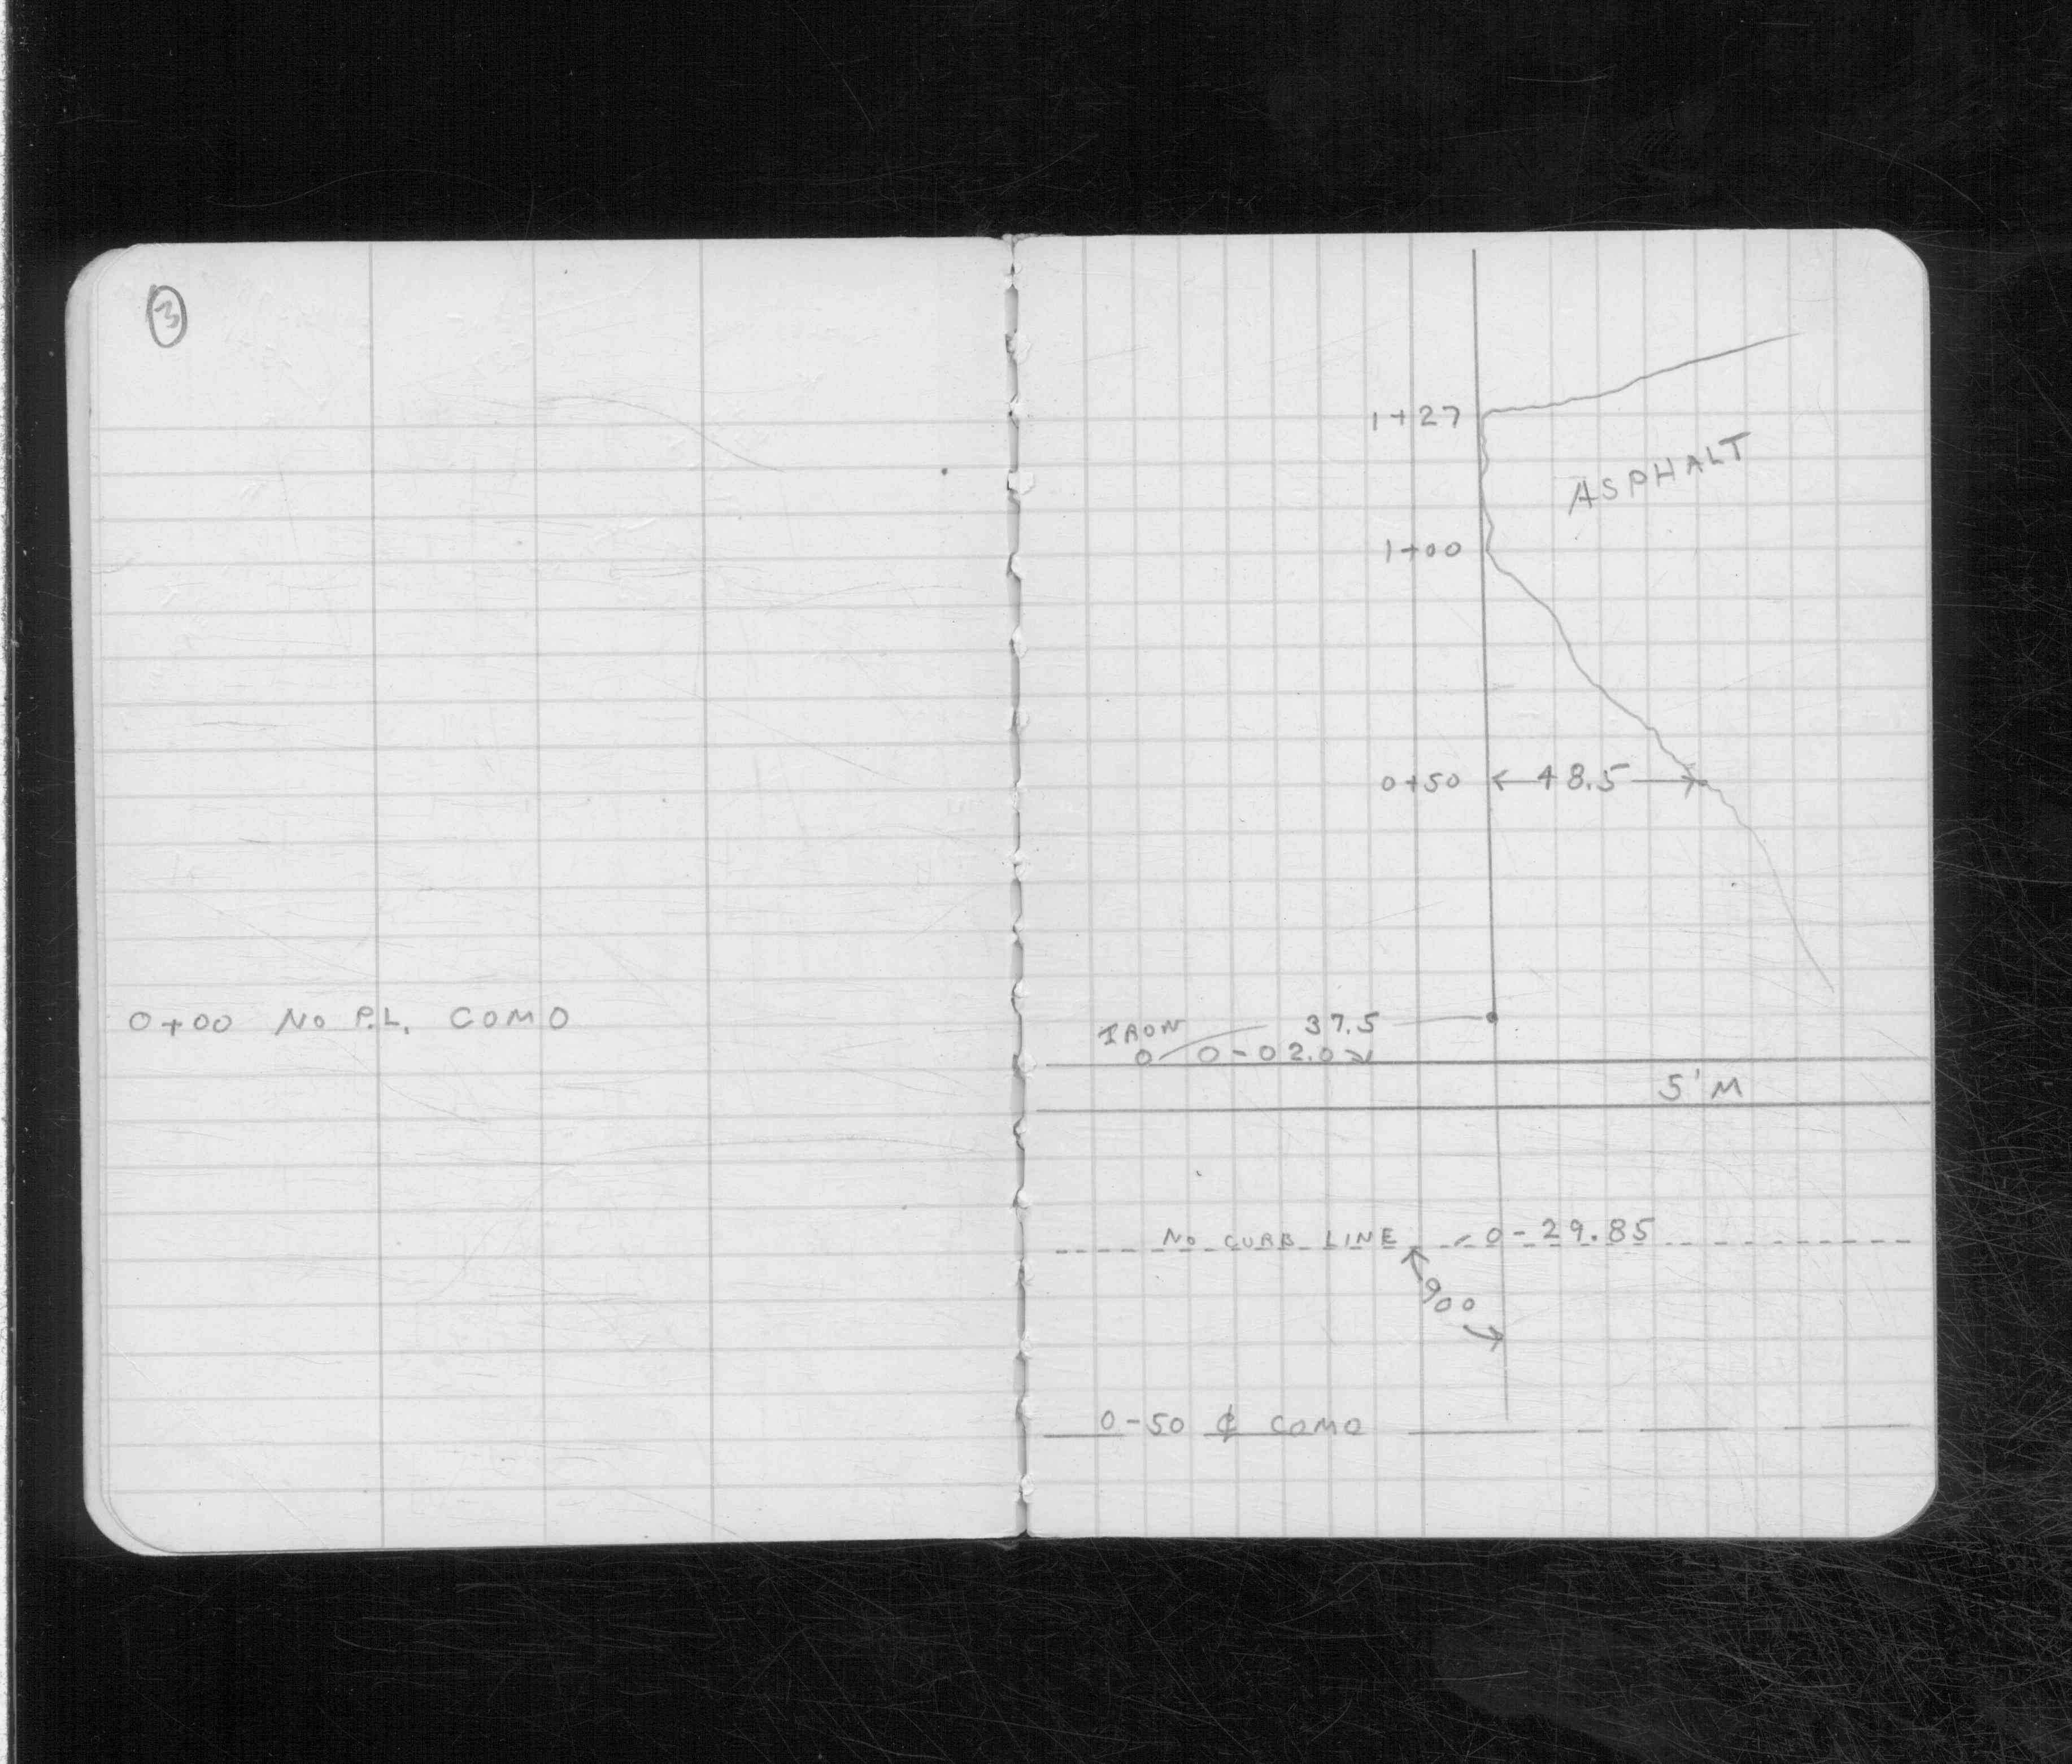 3
0+00 No P.L. COMO
1+27
ASPHALT
1+00
0+50 48.5
IRON 37.5
0-02.0
5' M
No CURB LINE 0-29.85
900
0-50 ₵ COMO